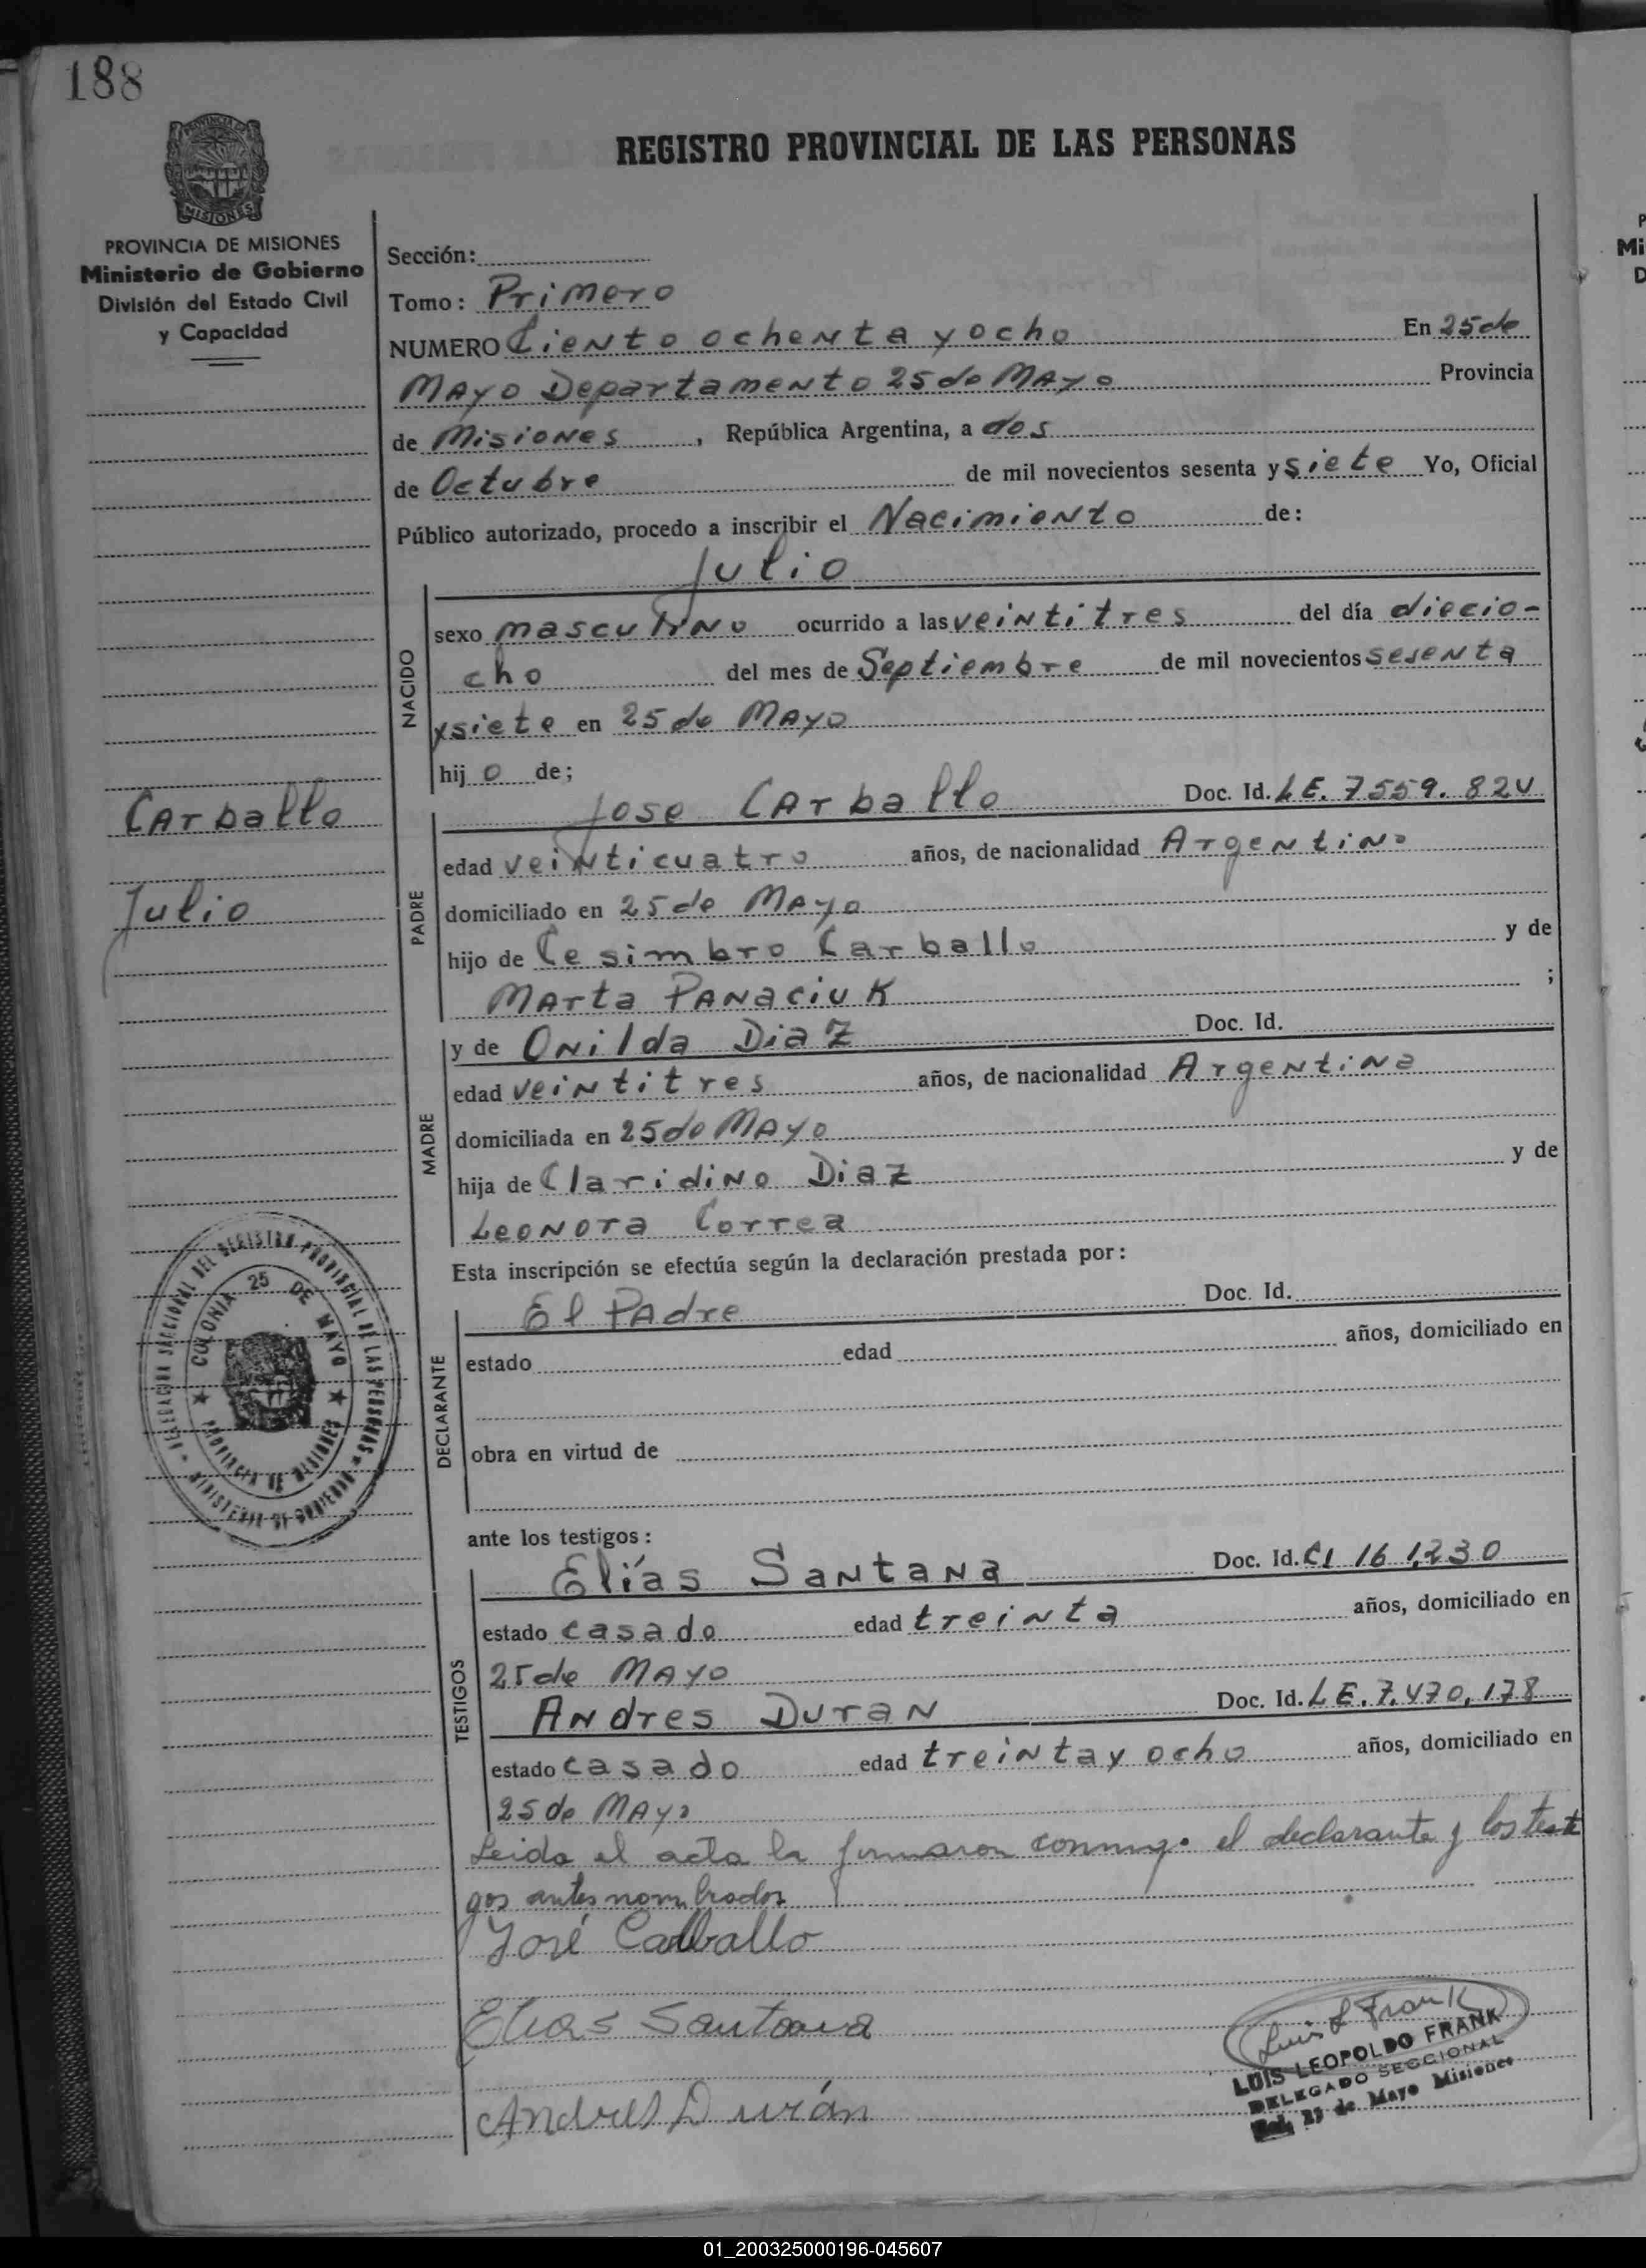 188
REGISTRO PROVINCIAL DE LAS PERSONAS
PROVINCIA DE MISIONES
MISIONES
PROVINCIA DE MISIONES
Ministerio de Gobierno
División del Estado Civil
y Capacidad
Sección:
Tomo: Primero
NUMERO Ciento ochenta y ocho En 25 de
Mayo Departamento 25 de Mayo Provincia
de Misiones, República Argentina, a dos
de Octubre de mil novecientos sesenta y siete Yo, Oficial
Público autorizado, procedo a inscribir el Nacimiento de:
Julio
NACIDO
sexo masculino ocurrido a las veintitres del día diecio-
cho del mes de Septiembre de mil novecientos sesenta
y siete en 25 de Mayo
hij o de;
Carballo
Julio
PADRE
Jose Carballo Doc. Id. LE. 7559.824
edad veinticuatro años, de nacionalidad Argentino
domiciliado en 25 de Mayo
hijo de Cesimbro Carballo y de
Marta Panaciuk ;
MADRE
y de Onilda Diaz Doc. Id.
edad veintitres años, de nacionalidad Argentina
domiciliada en 25 de Mayo
hija de Claridino Diaz y de
Leonora Correa
Esta inscripción se efectúa según la declaración prestada por:
DECLARANTE
El Padre Doc. Id.
estado edad años, domiciliado en
obra en virtud de
DELEGACION SECCIONAL DEL REGISTRO PROVINCIAL DE LAS PERSONAS
MINISTERIO DE GOBIERNO
COLONIA 25 DE MAYO
PROVINCIA DE MISIONES
ante los testigos:
TESTIGOS
Elías Santana Doc. Id. CI 161,230
estado casado edad treinta años, domiciliado en
25 de Mayo
Andres Duran Doc. Id. LE. 7.470,178
estado casado edad treinta y ocho años, domiciliado en
25 de Mayo
Leida el acta la firmaron conmigo el declarante y los testi
gos antes nombrados
José Carballo
Elias Santana
Andres Durán
Luis L Frank
LUIS LEOPOLDO FRANK
DELEGADO SECCIONAL
Col. 25 de Mayo Misiones
01_200325000196-045607